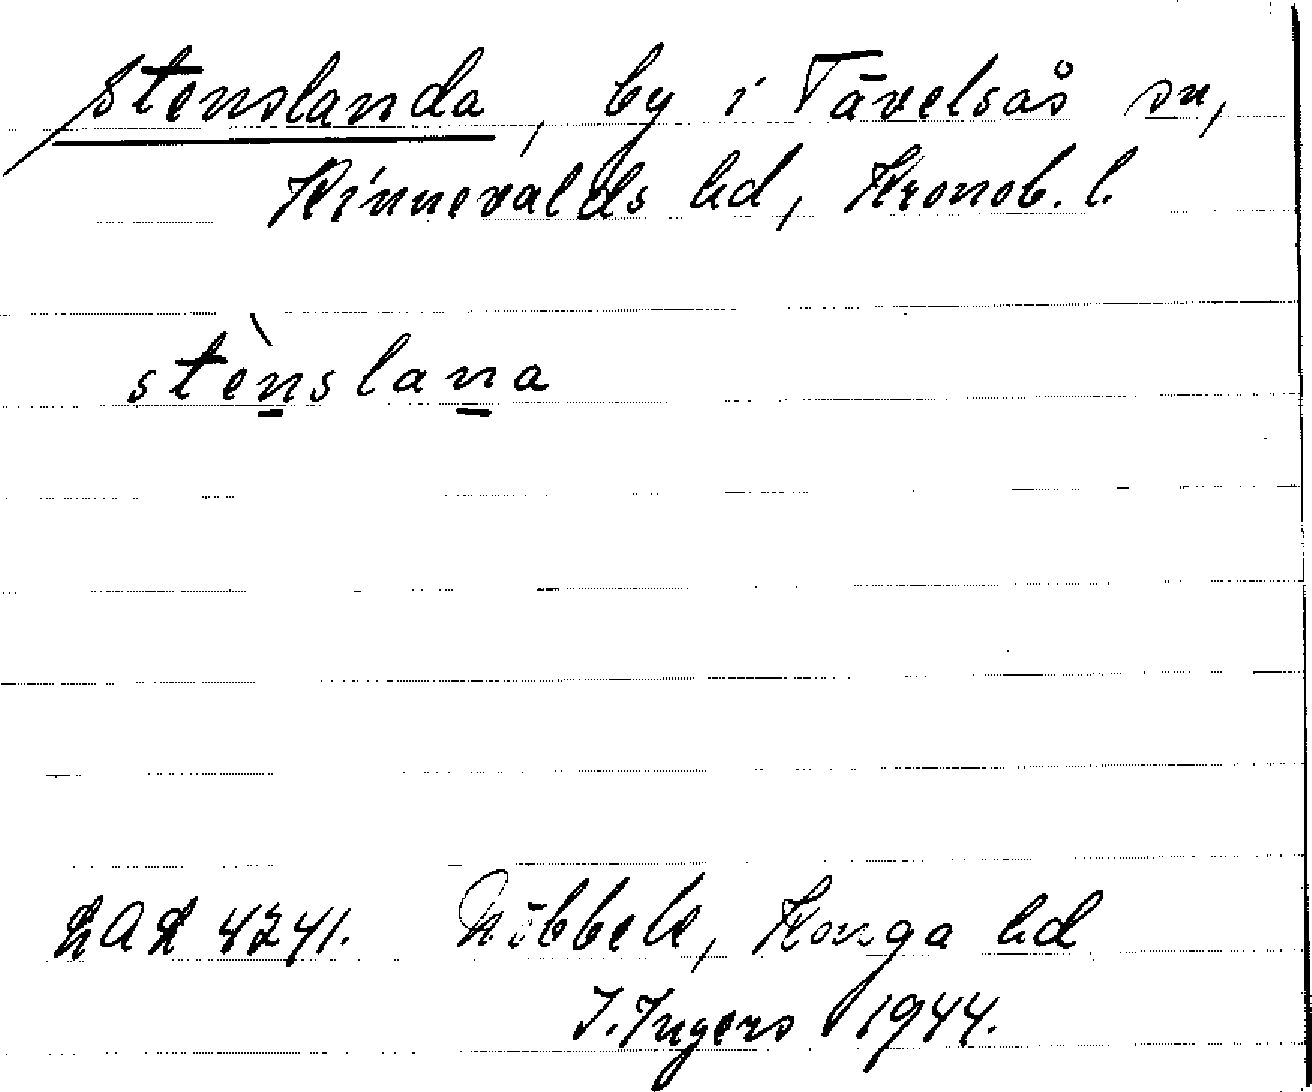 Stenslanda, by i Tävelsås sn,
Kinnevalds hd, Kronob. l.
stènslana
LAL 4241. Nöbbele, Konga hd
I. Ingers 1944.